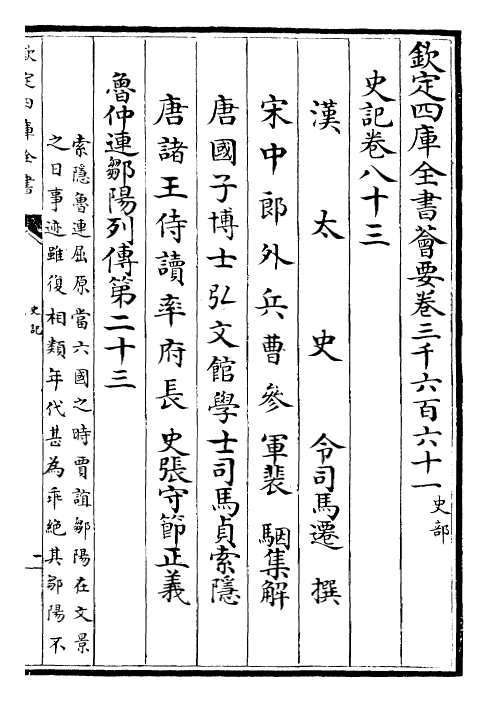 欽定四庫全書薈要卷三千六百六十一史部
史記卷八十三
漢太史令司馬遷撰
宋中郎外兵曹參軍裴駰集解
唐國子博士弘文館學士司馬貞索隱
唐諸王侍讀率府長史張守節正義
魯仲連鄒陽列傳第二十三
索隱魯連屈原當六國之時賈誼鄒陽在文景
之日事迹雖復相類年代甚為乖絕其鄒陽不
欽定四庫全書
史記